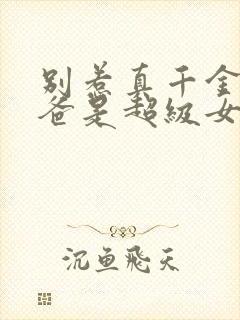 别惹真千金
爸是超级女
沉鱼飞天